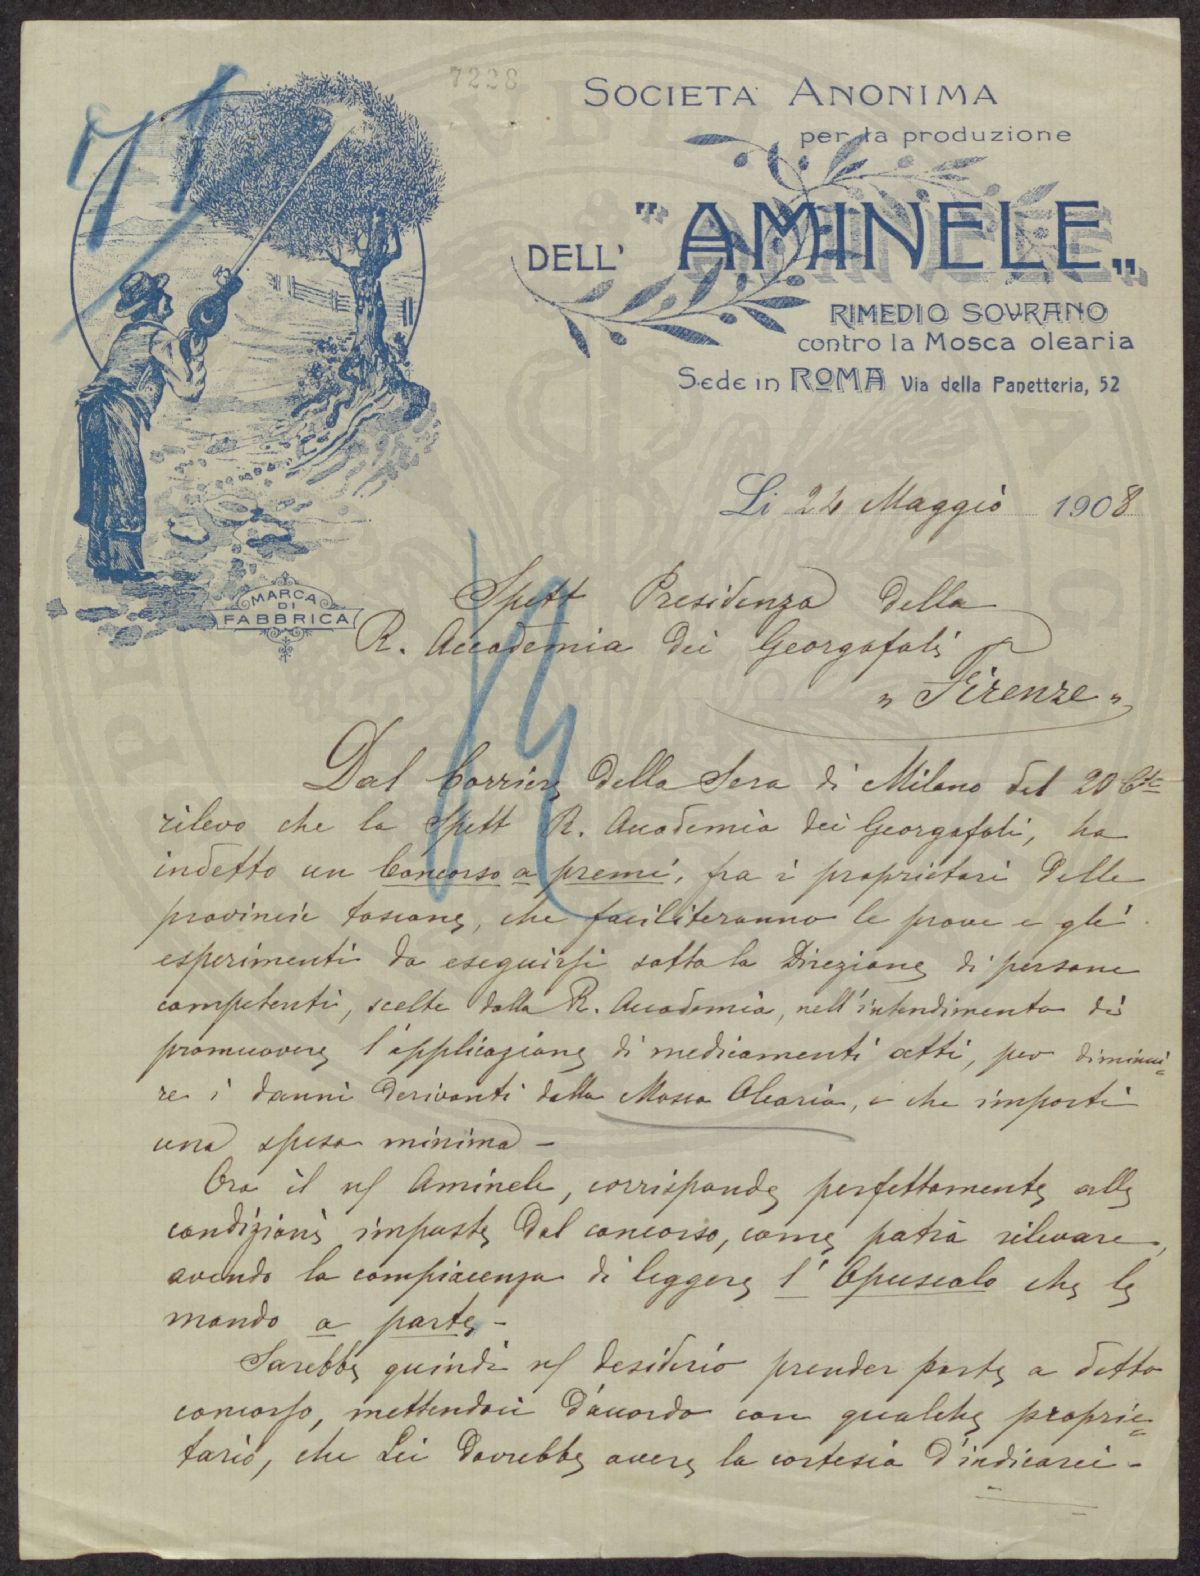 7228
SOCIETÀ ANONIMA
per la produzione
DELL' "AMINELE„
RIMEDIO SOVRANO
contro la Mosca olearia
Sede in ROMA Via della Panetteria, 52
MARCA
DI
FABBRICA
Li 24 Maggio 1908
Spett Presidenza della
R. Accademia dei Georgofali
" Firenze "
Dal Corriere della Sera di Milano del 20 Cte
rilevo che la Spett R. Accademia dei Georgofali, ha
indetto un Concorso a premi, fra i proprietari delle
provincie toscane, che faciliteranno le prove e gli
esperimenti da eseguirsi sotto la Direzione di persone
competenti, scelte dalla R. Accademia, nell'intendimento di
promuovere l'applicazione di medicamenti atti, per diminui=
re i danni derivanti dalla Mosca Olearia, e che importi
una spesa minima –
Ora il ns/ Aminele, corrisponde perfettamente alle
condizioni imposte dal concorso, come potrà rilevare,
avendo la compiacenza di leggere l'Opuscolo che le
mando a parte –
Sarebbe quindi ns/ desiderio prender parte a detto
concorso, mettendoci d'accordo con qualche proprie=
tario, che Lei dovrebbe avere la cortesia d'indicarci –